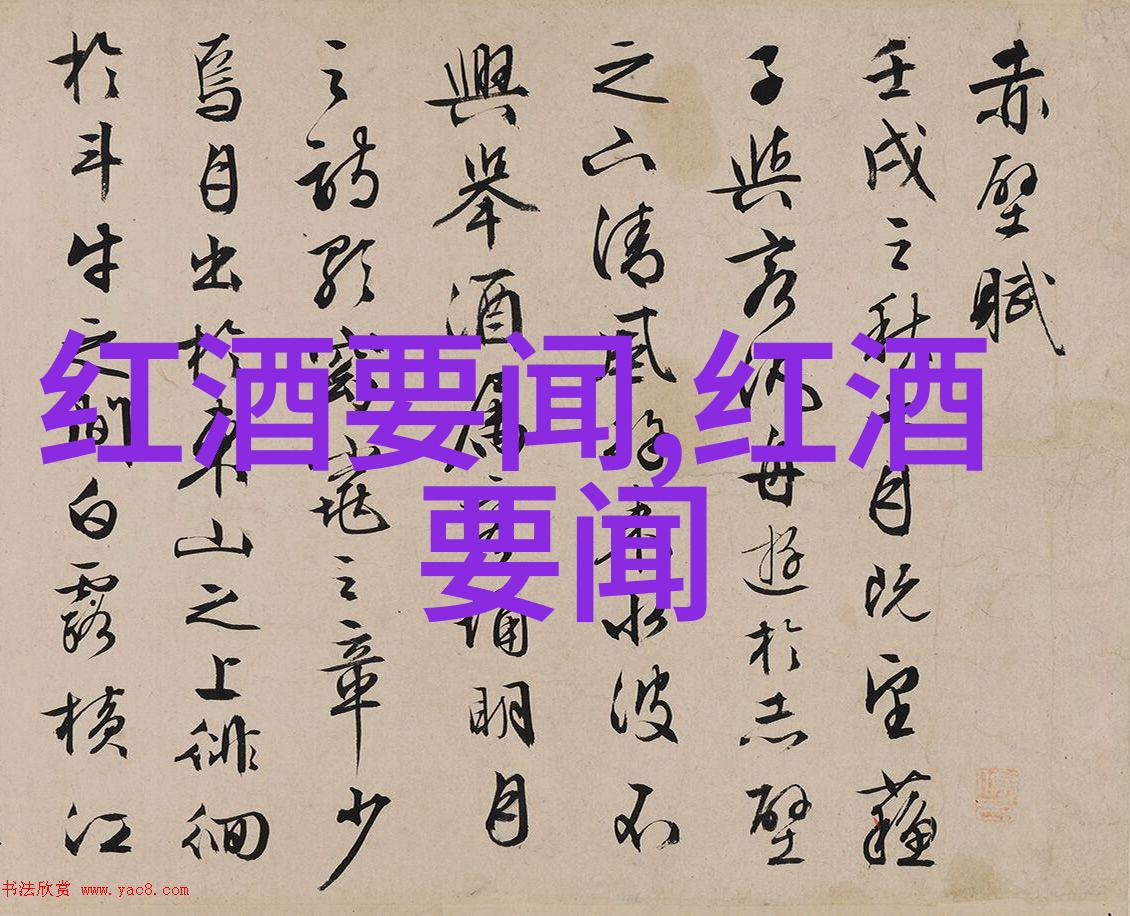 赤壁賦
壬戌之秋七月既望蘇
子與客泛舟遊於赤壁
之下清風徐來水波不
興舉酒屬客誦明月
之詩歌窈窕之章少
焉月出於東山之上徘徊
於斗牛之間白露橫江
红酒要闻,红酒
要闻
书法欣赏 www.yac8.com